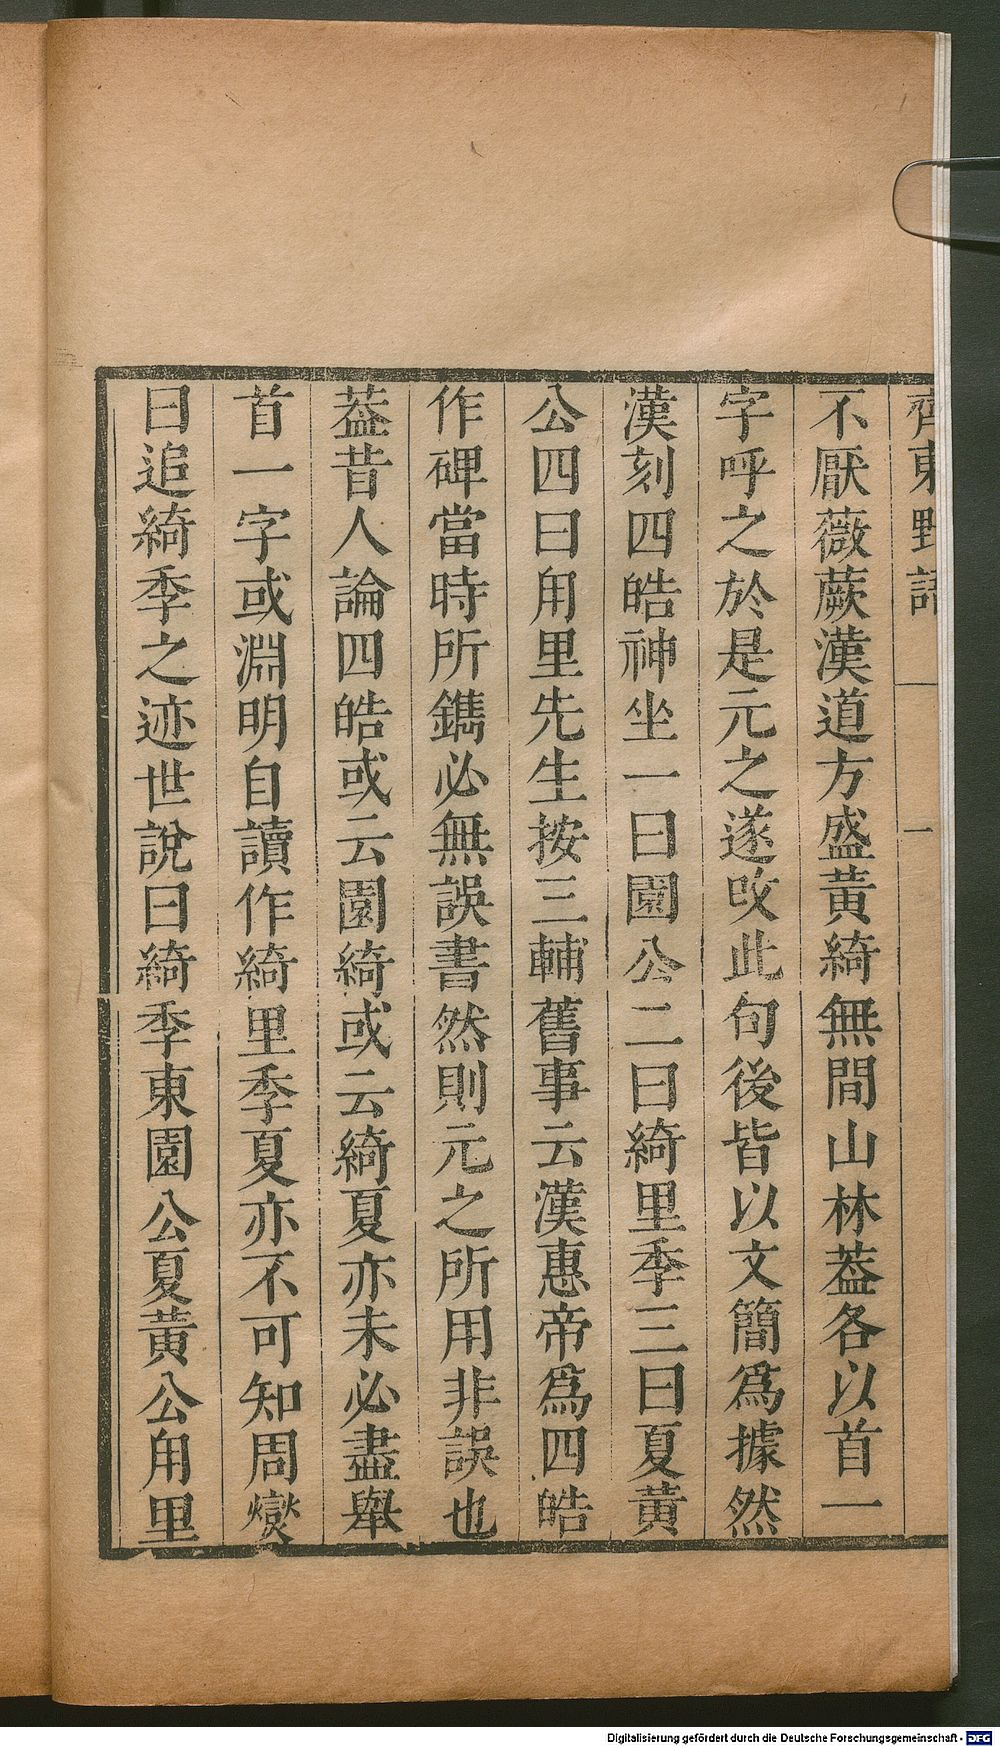 齊東野語 一
不厭薇蕨漢道方盛黃綺無間山林葢各以首一
字呼之於是元之遂攺此句後皆以文簡爲據然
漢刻四皓神坐一曰園公二曰綺里季三曰夏黃
公四曰甪里先生按三輔舊事云漢惠帝爲四皓
作碑當時所鐫必無誤書然則元之所用非誤也
葢昔人論四皓或云園綺或云綺夏亦未必盡舉
首一字或淵明自讀作綺里季夏亦不可知周燮
曰追綺季之迹世說曰綺季東園公夏黃公甪里
Digitalisierung gefördert durch die Deutsche Forschungsgemeinschaft - DFG